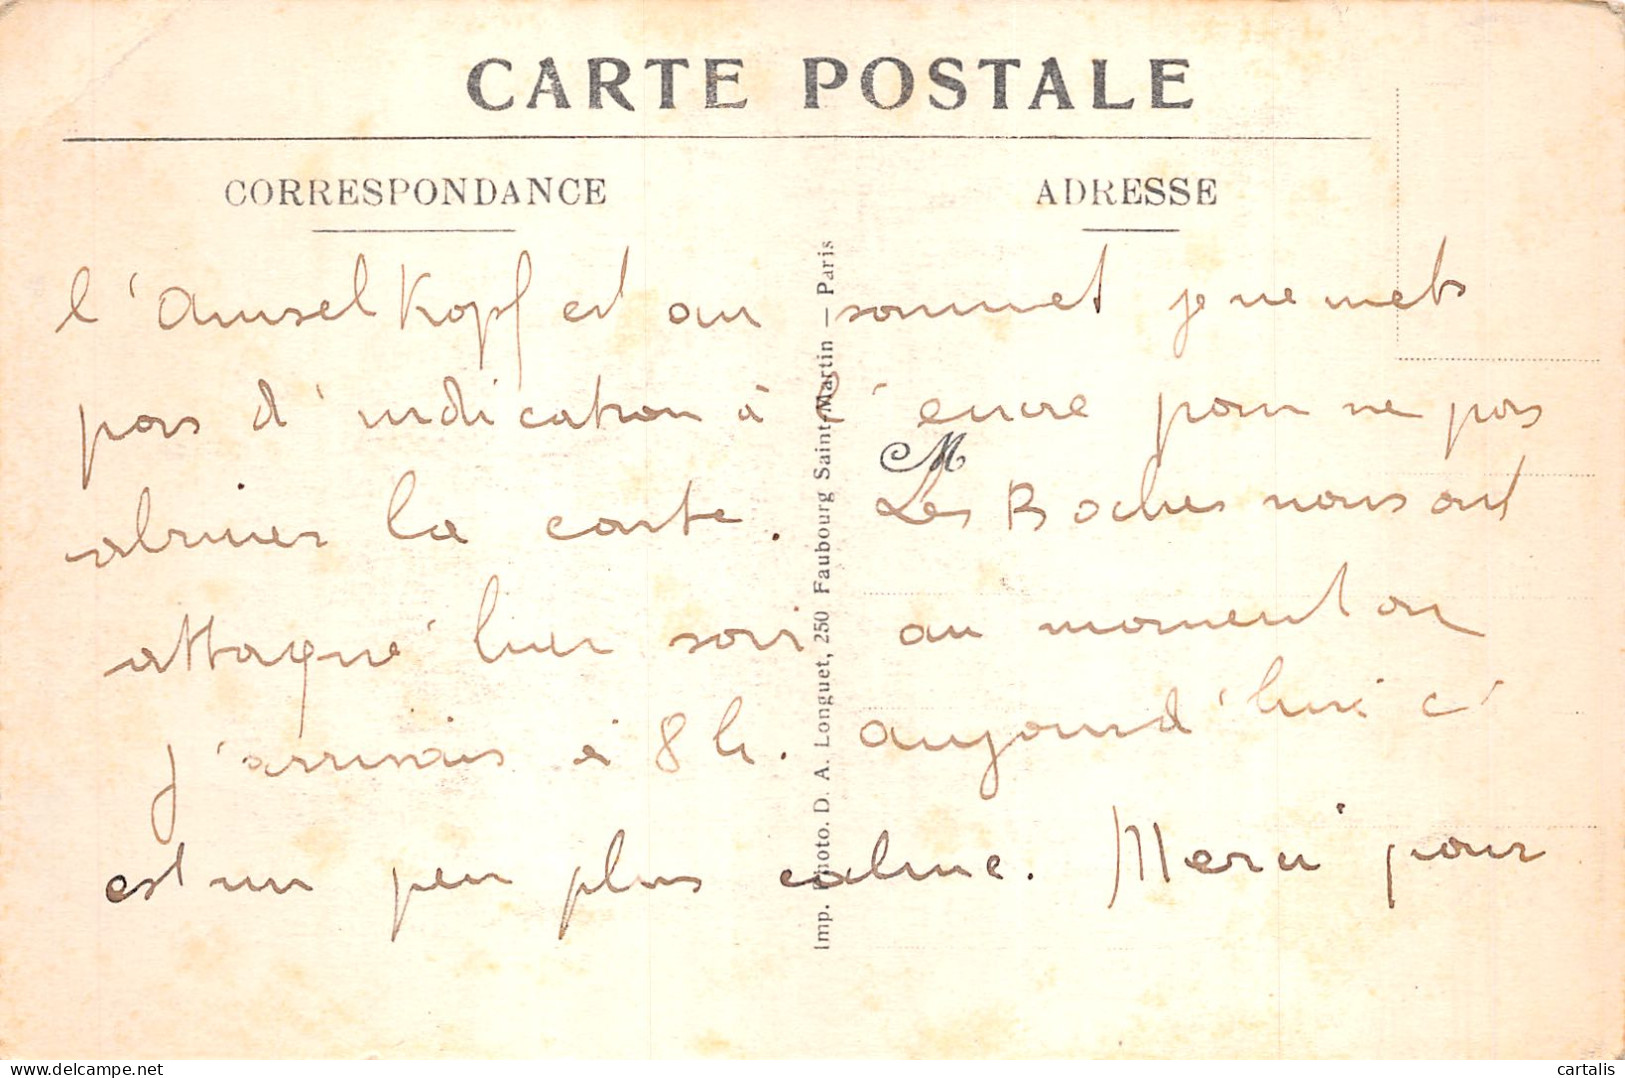 CARTE POSTALE
CORRESPONDANCE
ADRESSE
l'Amselkopf est au sommet je ne mets
pas d'indication à l'encre pour ne pas
abimer la carte. Les Boches nous ont
attaqué hier soir au moment où
j'arrivais à 8h. aujourd'hui c'
est un peu plus calme. Merci pour
M
Imp. Photo. D. A. Longuet, 250 Faubourg Saint-Martin — Paris
delcampe.net
cartalis